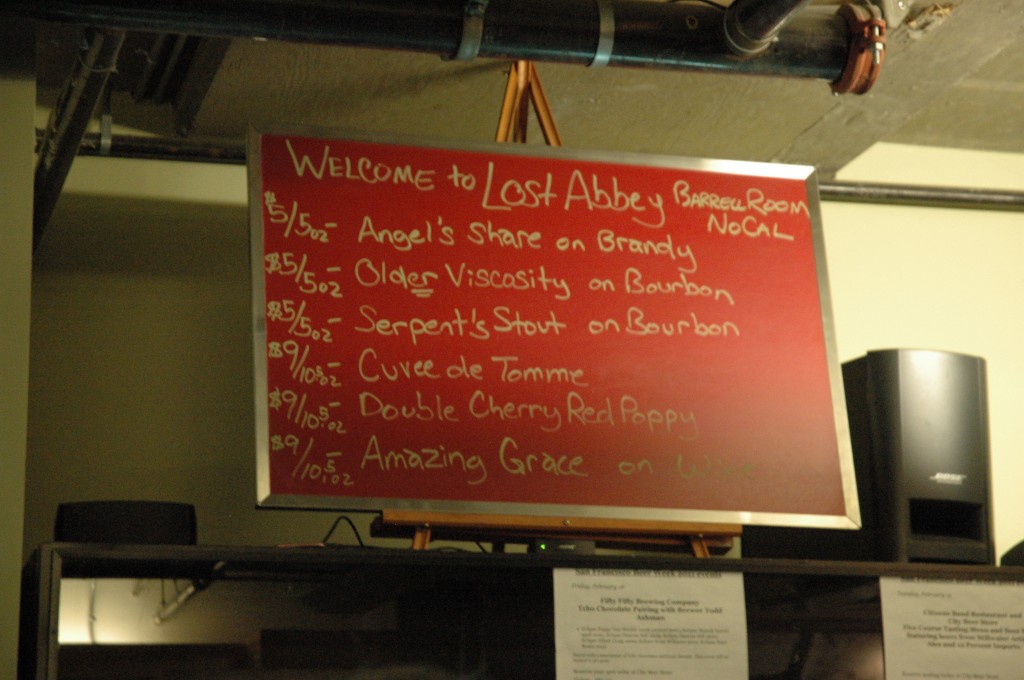 WELCOME to Lost Abbey BARREL ROOM
NOCAL
$5/5oz- Angel's Share on Brandy
$5/5oz- Older Viscosity on Bourbon
$5/5oz- Serpent's Stout on Bourbon
$9/10.5oz- Cuvee de Tomme
$9/10.5oz- Double Cherry Red Poppy
$9/10.5oz- Amazing Grace on Wine
BOSE
San Francisco Beer Week 2011 Events
Fifty Fifty Brewing Company
Tcho Chocolate Pairing with Brewer Todd
Ashman
Citizens Band Restaurant and
City Beer Store
Five Course Tasting Menu and Beer
featuring beers from Stillwater
Ales and 12 Percent Imports